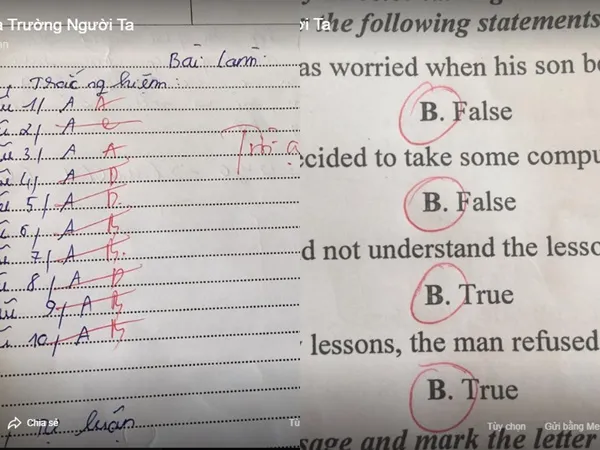 Trường Người Ta
Bài làm:
Trắc nghiệm:
1/ A A
2/ A C
3/ A A
4/ A D
5/ A B
6/ A B
7/ A B
8/ A D
9/ A B
10/ A B
Tự luận
Chia sẻ
Ta
the following statements
as worried when his son
B. False
decided to take some
B. False
not understand the
B. True
lessons, the man refused
B. True
Tùy chọn
Gửi bằng
and mark the letter